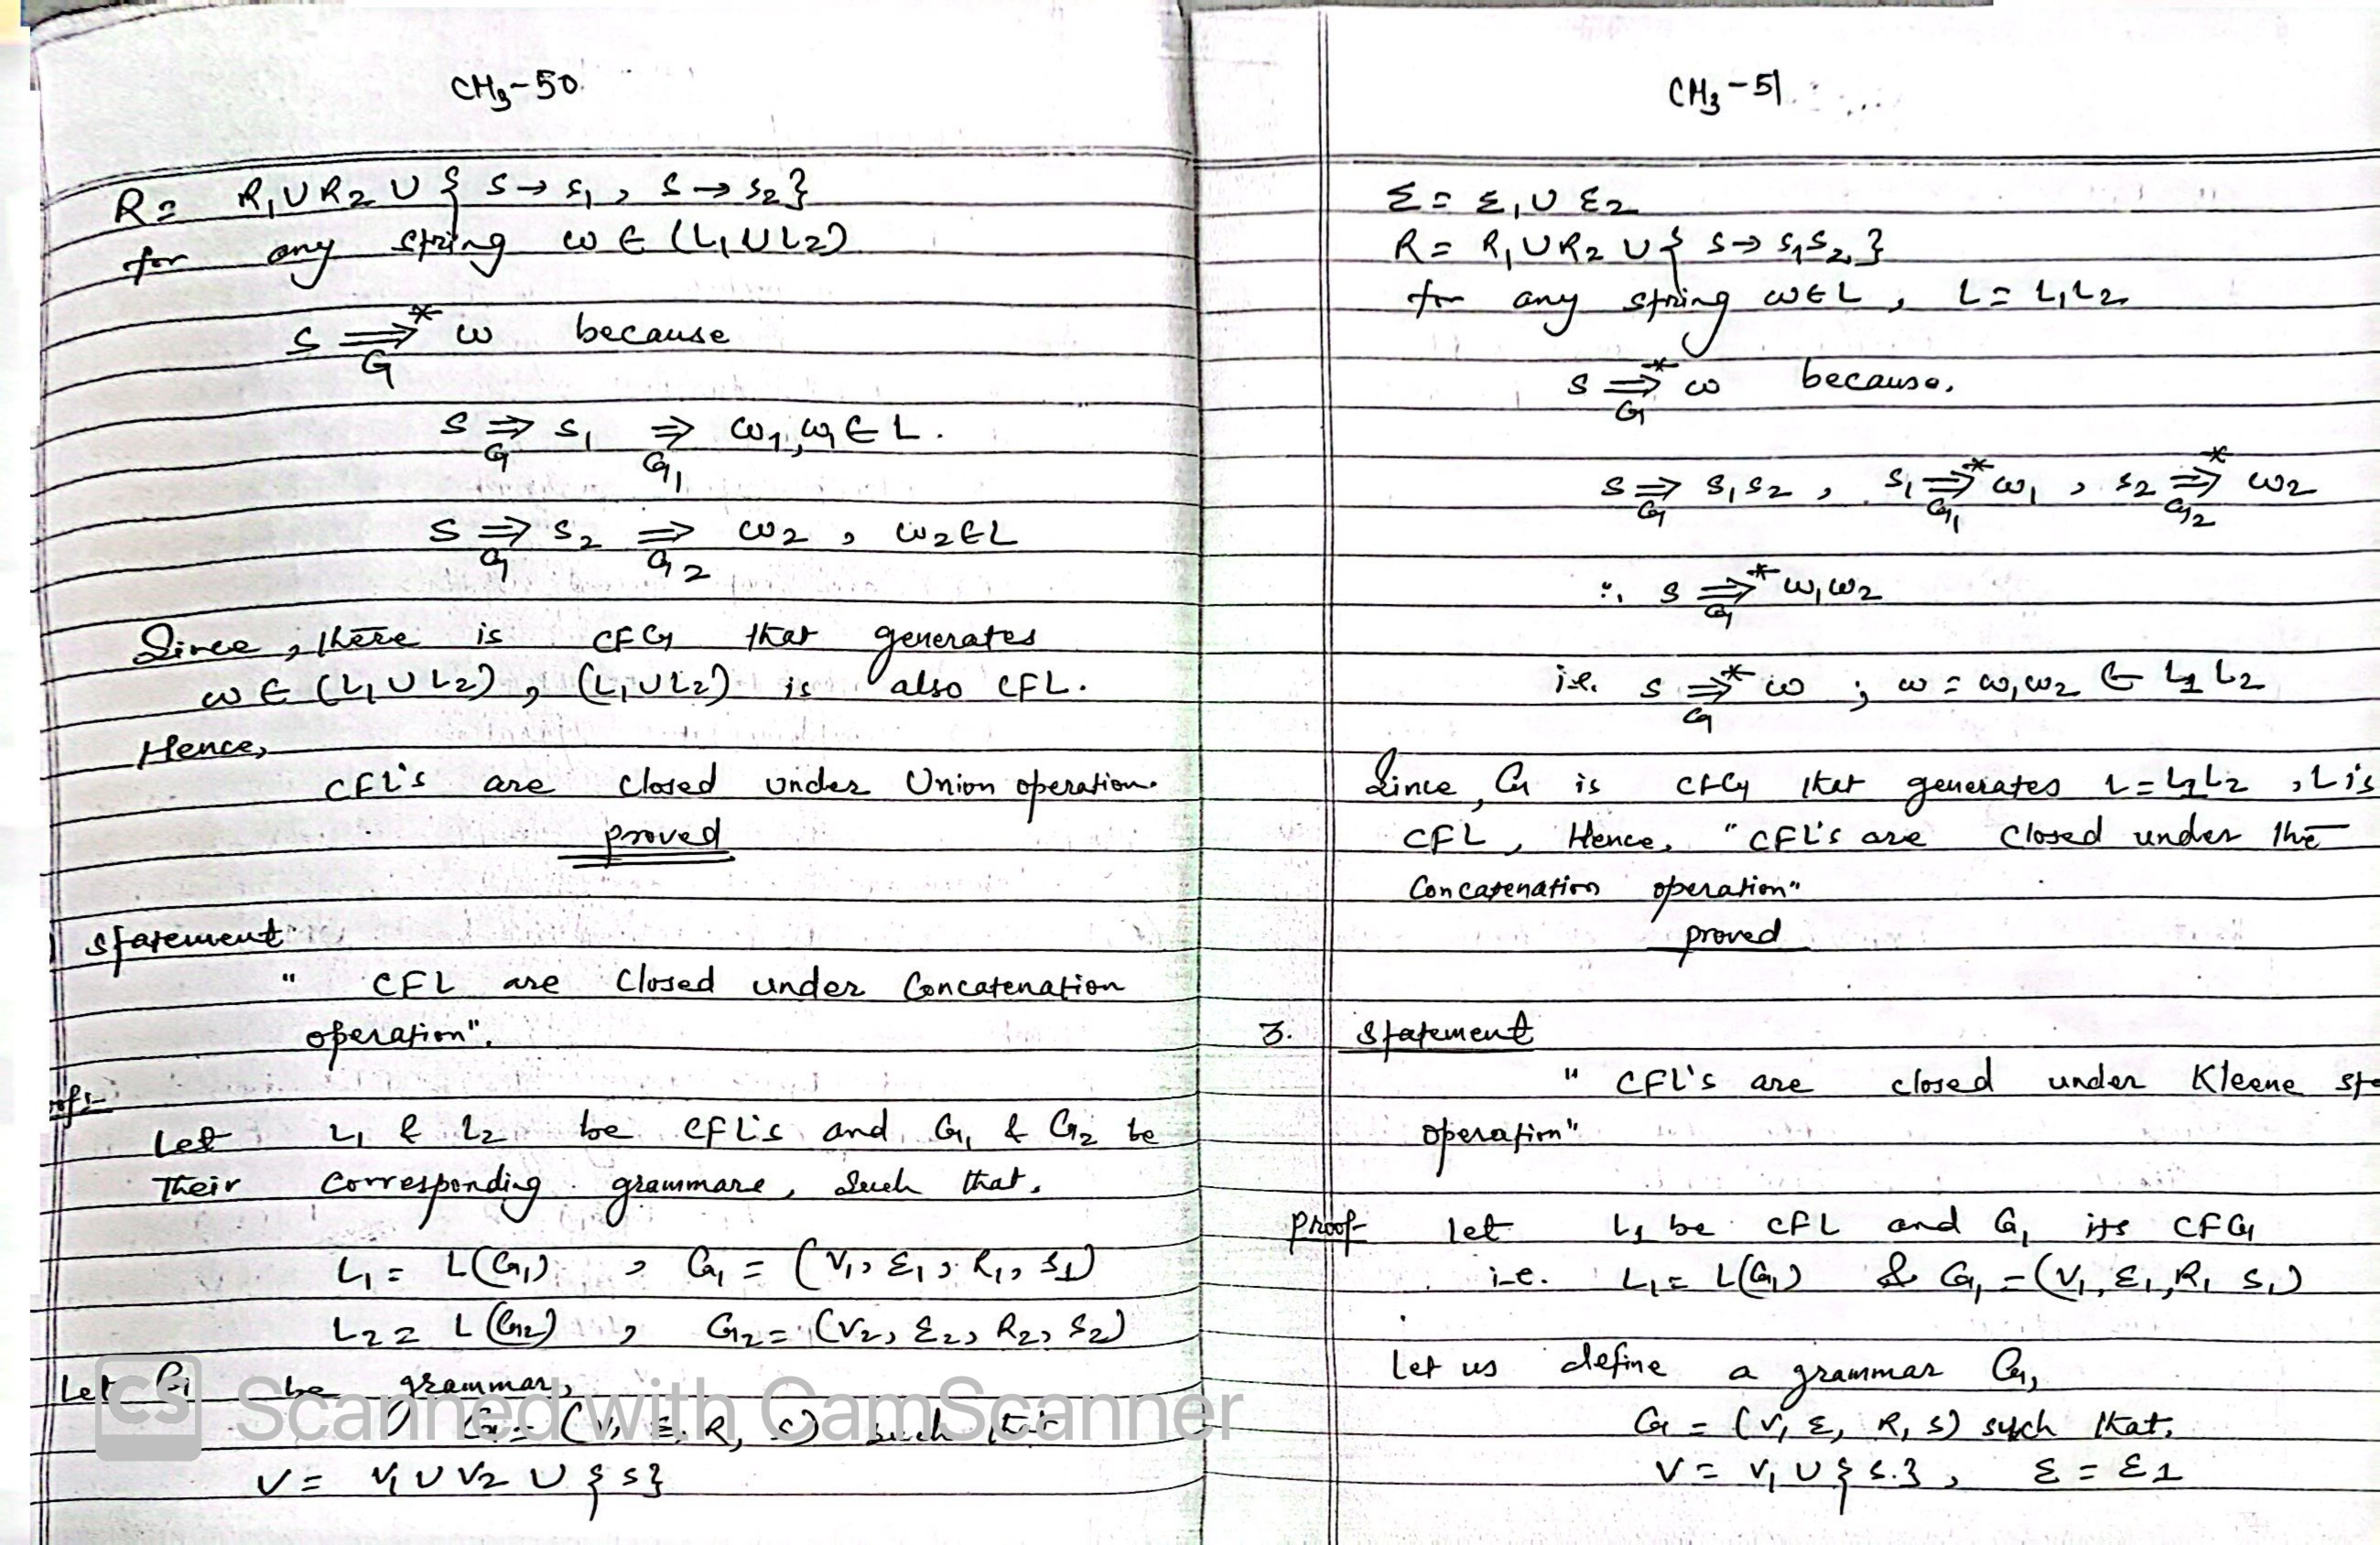 CH3-50.
R = R₁ ∪ R₂ ∪ { S → S₁ , S → S₂ }
for any string ω ∈ (L₁ ∪ L₂)
S ⇒* ω because
G
S ⇒ S₁ ⇒ ω₁, ω₁ ∈ L.
G G₁
S ⇒ S₂ ⇒ ω₂ , ω₂ ∈ L
G G₂
Since, there is CFG that generates
ω ∈ (L₁ ∪ L₂) , (L₁ ∪ L₂) is also CFL.
Hence,
CFL's are closed under Union operation.
proved
Statement
" CFL are closed under Concatenation
operation".
Let L₁ & L₂ be CFL's and G₁ & G₂ be
Their corresponding grammars, Such that,
L₁ = L(G₁) , G₁ = (V₁, Σ₁, R₁, S₁)
L₂ = L(G₂) , G₂ = (V₂, Σ₂, R₂, S₂)
Let G be grammar,
G = (V, Σ, R, S) such
V = V₁ ∪ V₂ ∪ {S}
CS Scanned with CamScanner
CH3-51.
Σ = Σ₁ ∪ Σ₂
R = R₁ ∪ R₂ ∪ { S → S₁S₂ }
for any string ω ∈ L , L = L₁L₂
S ⇒* ω because.
G
S ⇒ S₁S₂ , S₁ ⇒* ω₁ , S₂ ⇒* ω₂
G G₁ G₂
∴ S ⇒* ω₁ω₂
G
i.e. S ⇒* ω ; ω = ω₁ω₂ ∈ L₁L₂
G
Since, G is CFG that generates L = L₁L₂ , L is
CFL, Hence, "CFL's are closed under the
Concatenation operation"
proved
3. Statement
" CFL's are closed under Kleene
operation"
Proof let L₁ be CFL and G₁ its CFG
i.e. L₁ = L(G₁) & G₁ = (V₁, Σ₁, R₁ S₁)
Let us define a grammar G,
G = (V, Σ, R, S) such that,
V = V₁ ∪ {S.} , Σ = Σ1